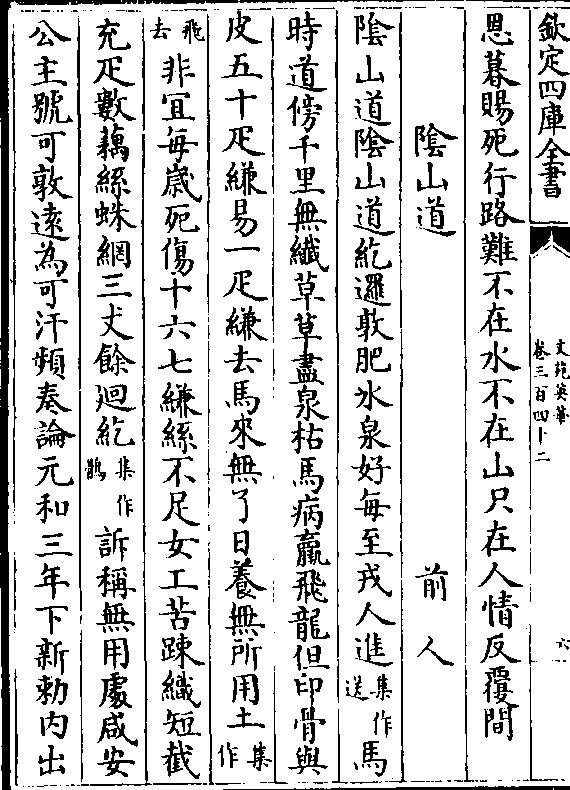 欽定四庫全書
文苑英華
卷三百四十二
六
恩暮賜死行路難不在水不在山只在人情反覆間
陰山道 前人
陰山道陰山道紇邏敦肥水泉好每至戎人進集作送馬
時道傍千里無纖草草盡泉枯馬病羸飛龍但印骨與
皮五十疋縑易一疋縑去馬來無了日養無所用土集作
飛去非宜每歲死傷十六七縑絲不足女工苦踈織短截
充疋數藕絲蛛網三丈餘迴紇集作鶻訴稱無用處咸安
公主號可敦遠為可汗頻奏論元和三年下新勅内出